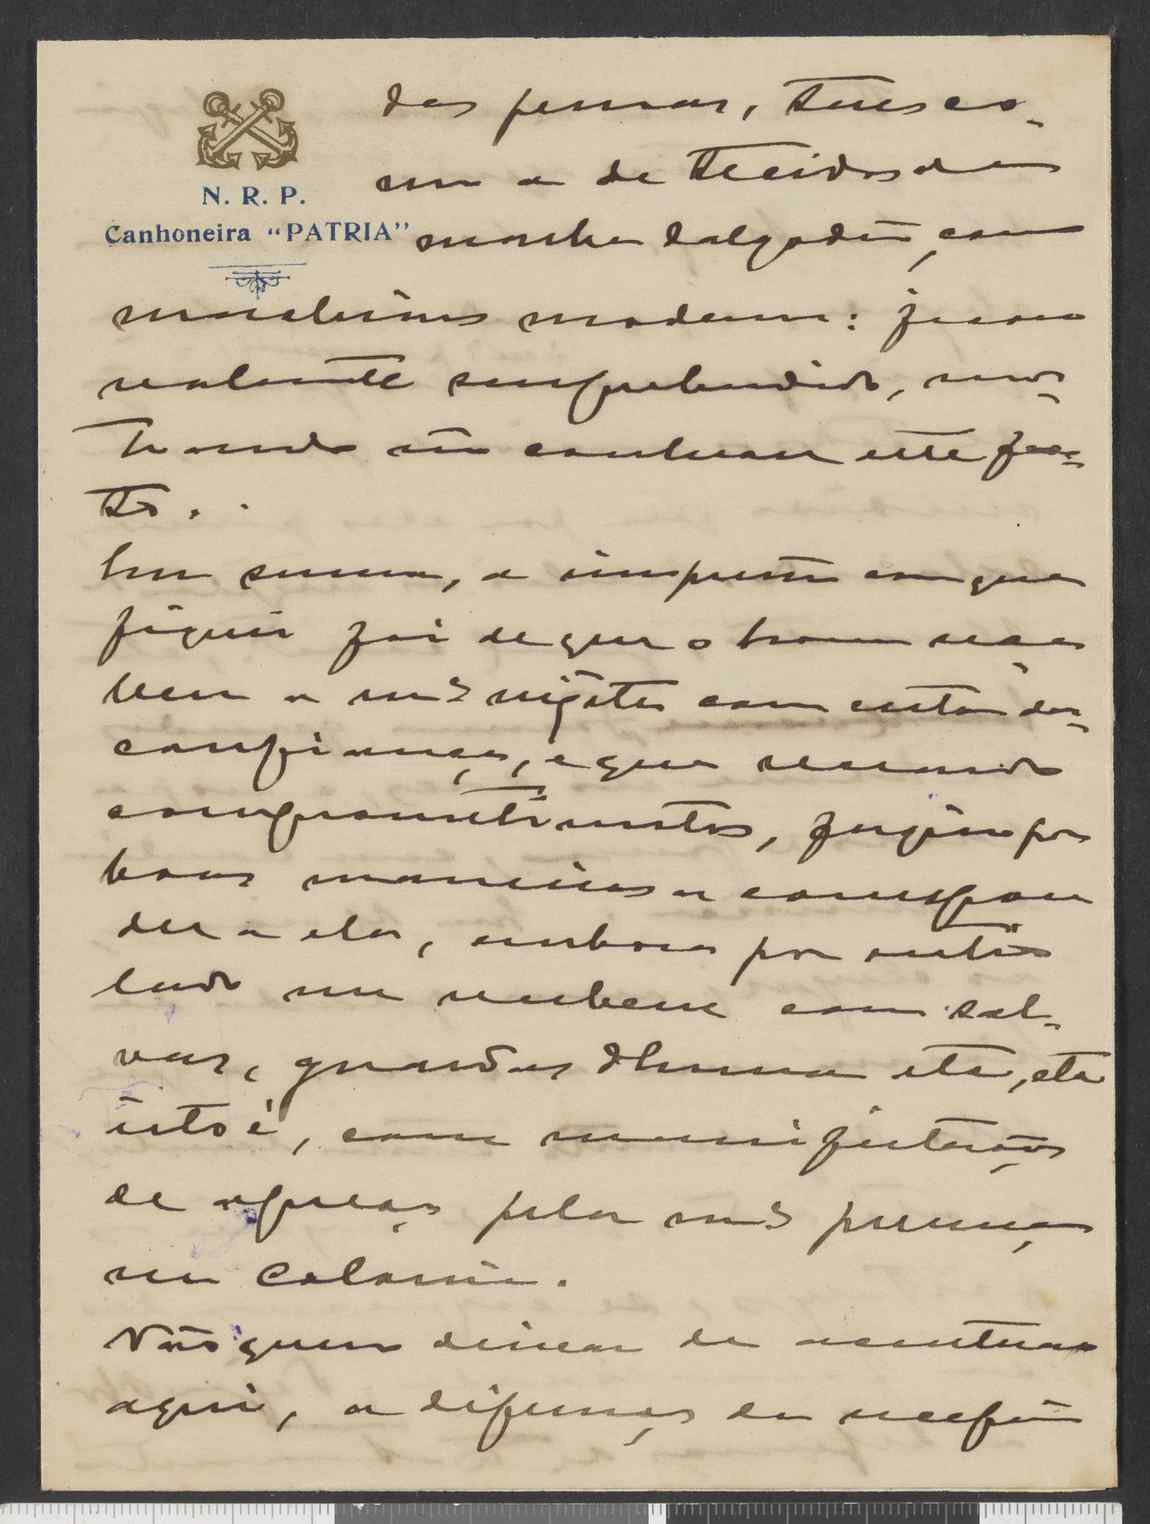 N. R. P.
Canhoneira "PATRIA"
das pennas, taes co-
mo a de tecidos de
d'algodão, com
machinas modernas: ficou
realmente surprehendido, mos-
trando não conhecer este fac-
to..
Em summa, a impressão com que
fiquei foi de que o homem rece-
beu a m.ª visita com certa des-
confiança, e que receando
compromettimentos, fugiu por
boas maneiras a correspon
der a ela, embora por outro
lado me recebesse com sal-
vas, guardas d'honra etc, etc
isto é, com manifestações
de apreço pela m.ª presença
na Colonia.
Não quero deixar de accentuar
aqui, a diferença da recepção